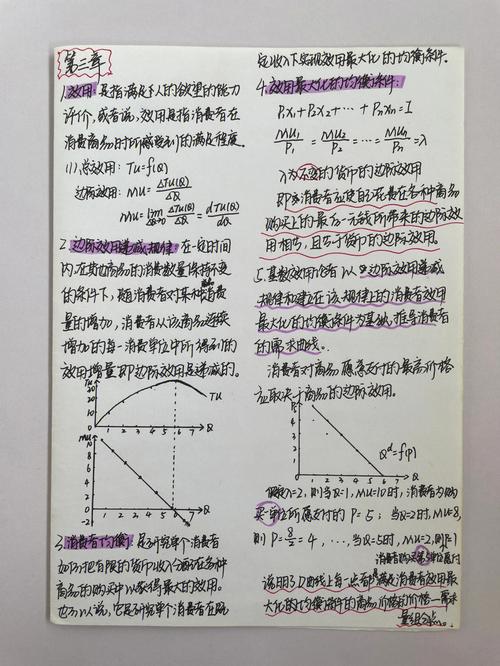 第三章
1.效用:是指满足人的欲望的能力
评价,或者说,效用是指消费者在
消费商品时所感受到的满足程度。
(1)总效用:TU=f(Q)
边际效用:MU=ΔTU(Q)/ΔQ
MU=lim ΔQ→0 ΔTU(Q)/ΔQ=dTU(Q)/dQ
2.边际效用递减规律:在一定时间
内,在其他商品的消费数量保持不变
的条件下,随消费者对某种商品消费
量的增加,消费者从该商品连续
增加的每一消费单位中所得到的
效用增量即边际效用是递减的。
TU
30
20
10
0 1 2 3 4 5 6 7 Q
TU
MU
10
8
6
4
2
0
-2
1 2 3 4 5 6 7 Q
3.消费者均衡:是研究单个消费者
如何把有限的货币收入分配在各种
商品的购买中以获得最大的效用。
也可以说,它是研究单个消费者在既
定收入下实现效用最大化的均衡条件。
4.效用最大化的均衡条件:
P₁X₁+P₂X₂+…+PnXn=I
MU₁/P₁=MU₂/P₂=…=MUn/Pn=λ
λ为不变的货币的边际效用
即消费者应使自己花费在各种商品
购买上的最后一元钱所带来的边际效
用相等,且等于货币的边际效用。
5.基数效用论者以边际效用递减
规律和建立在该规律上的消费者效用
最大化的均衡条件为基础,推导消费者
的需求曲线。
消费者对商品愿意支付的最高价格
应取决于商品的边际效用。
P
5
4
3
2
1
0 1 2 3 4 5 6 7 Q
Qᵈ=f(P)
假设λ=2,则当Q=1,MU=10时,消费者为购
买一单位所愿支付的P=5;当Q=2时,MU=8,
则P=8/2=4,…,当Q=5时,MU=2,则P=1
说明了D曲线上每一点都满足消费者效用最
大化的均衡条件的商品价格的价格—需求
量组合点。